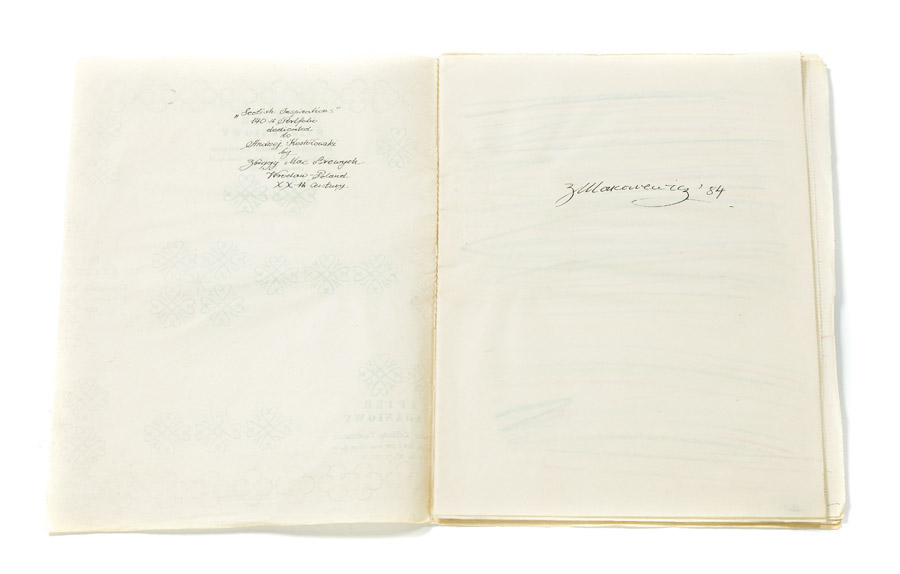 „Scotish Inspirations"
140-th Portfolio
dedicated
to
Andrzej Kostołowski
by
Zbyggy Mac Brewnych
Wrocław-Poland
XX-th century.
ZMakarewicz '84